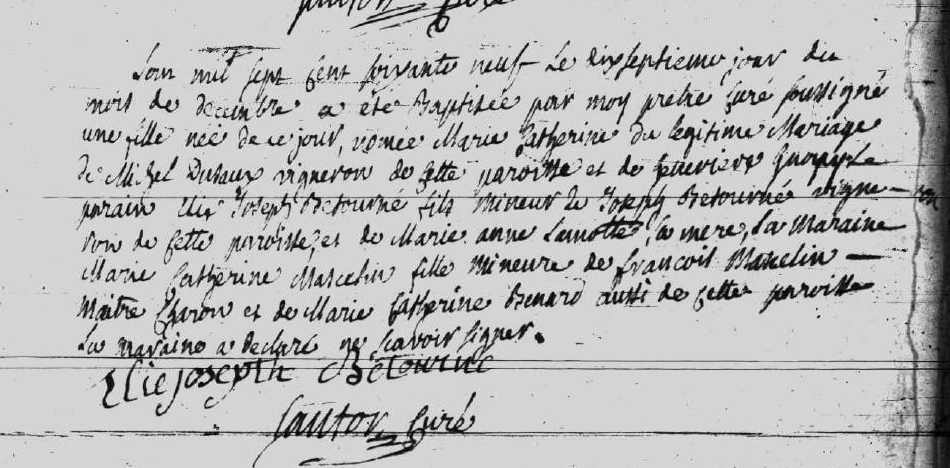 L'an mil sept cent soixante neuf le dix septieme jour du
mois de decembre a été Baptisée par moy pretre Curé soussigné
une fille née de ce jour, nomée Marie Catherine du legitime Mariage
de Michel Duvaux vigneron de cette paroisse et de Genevieve
parain Elie Joseph Betourné fils Mineur de Joseph Betourné vigne-
ron de cette paroisse, et de Marie anne Lamotte, sa mere, La Maraine
Marie Catherine Mascelin fille Mineure de francois Mascelin —
Maitre Charon et de Marie Catherine Benard aussi de cette paroisse
La maraine a declaré ne scavoir signer.
Elie joseph Betourné
Santon Curé